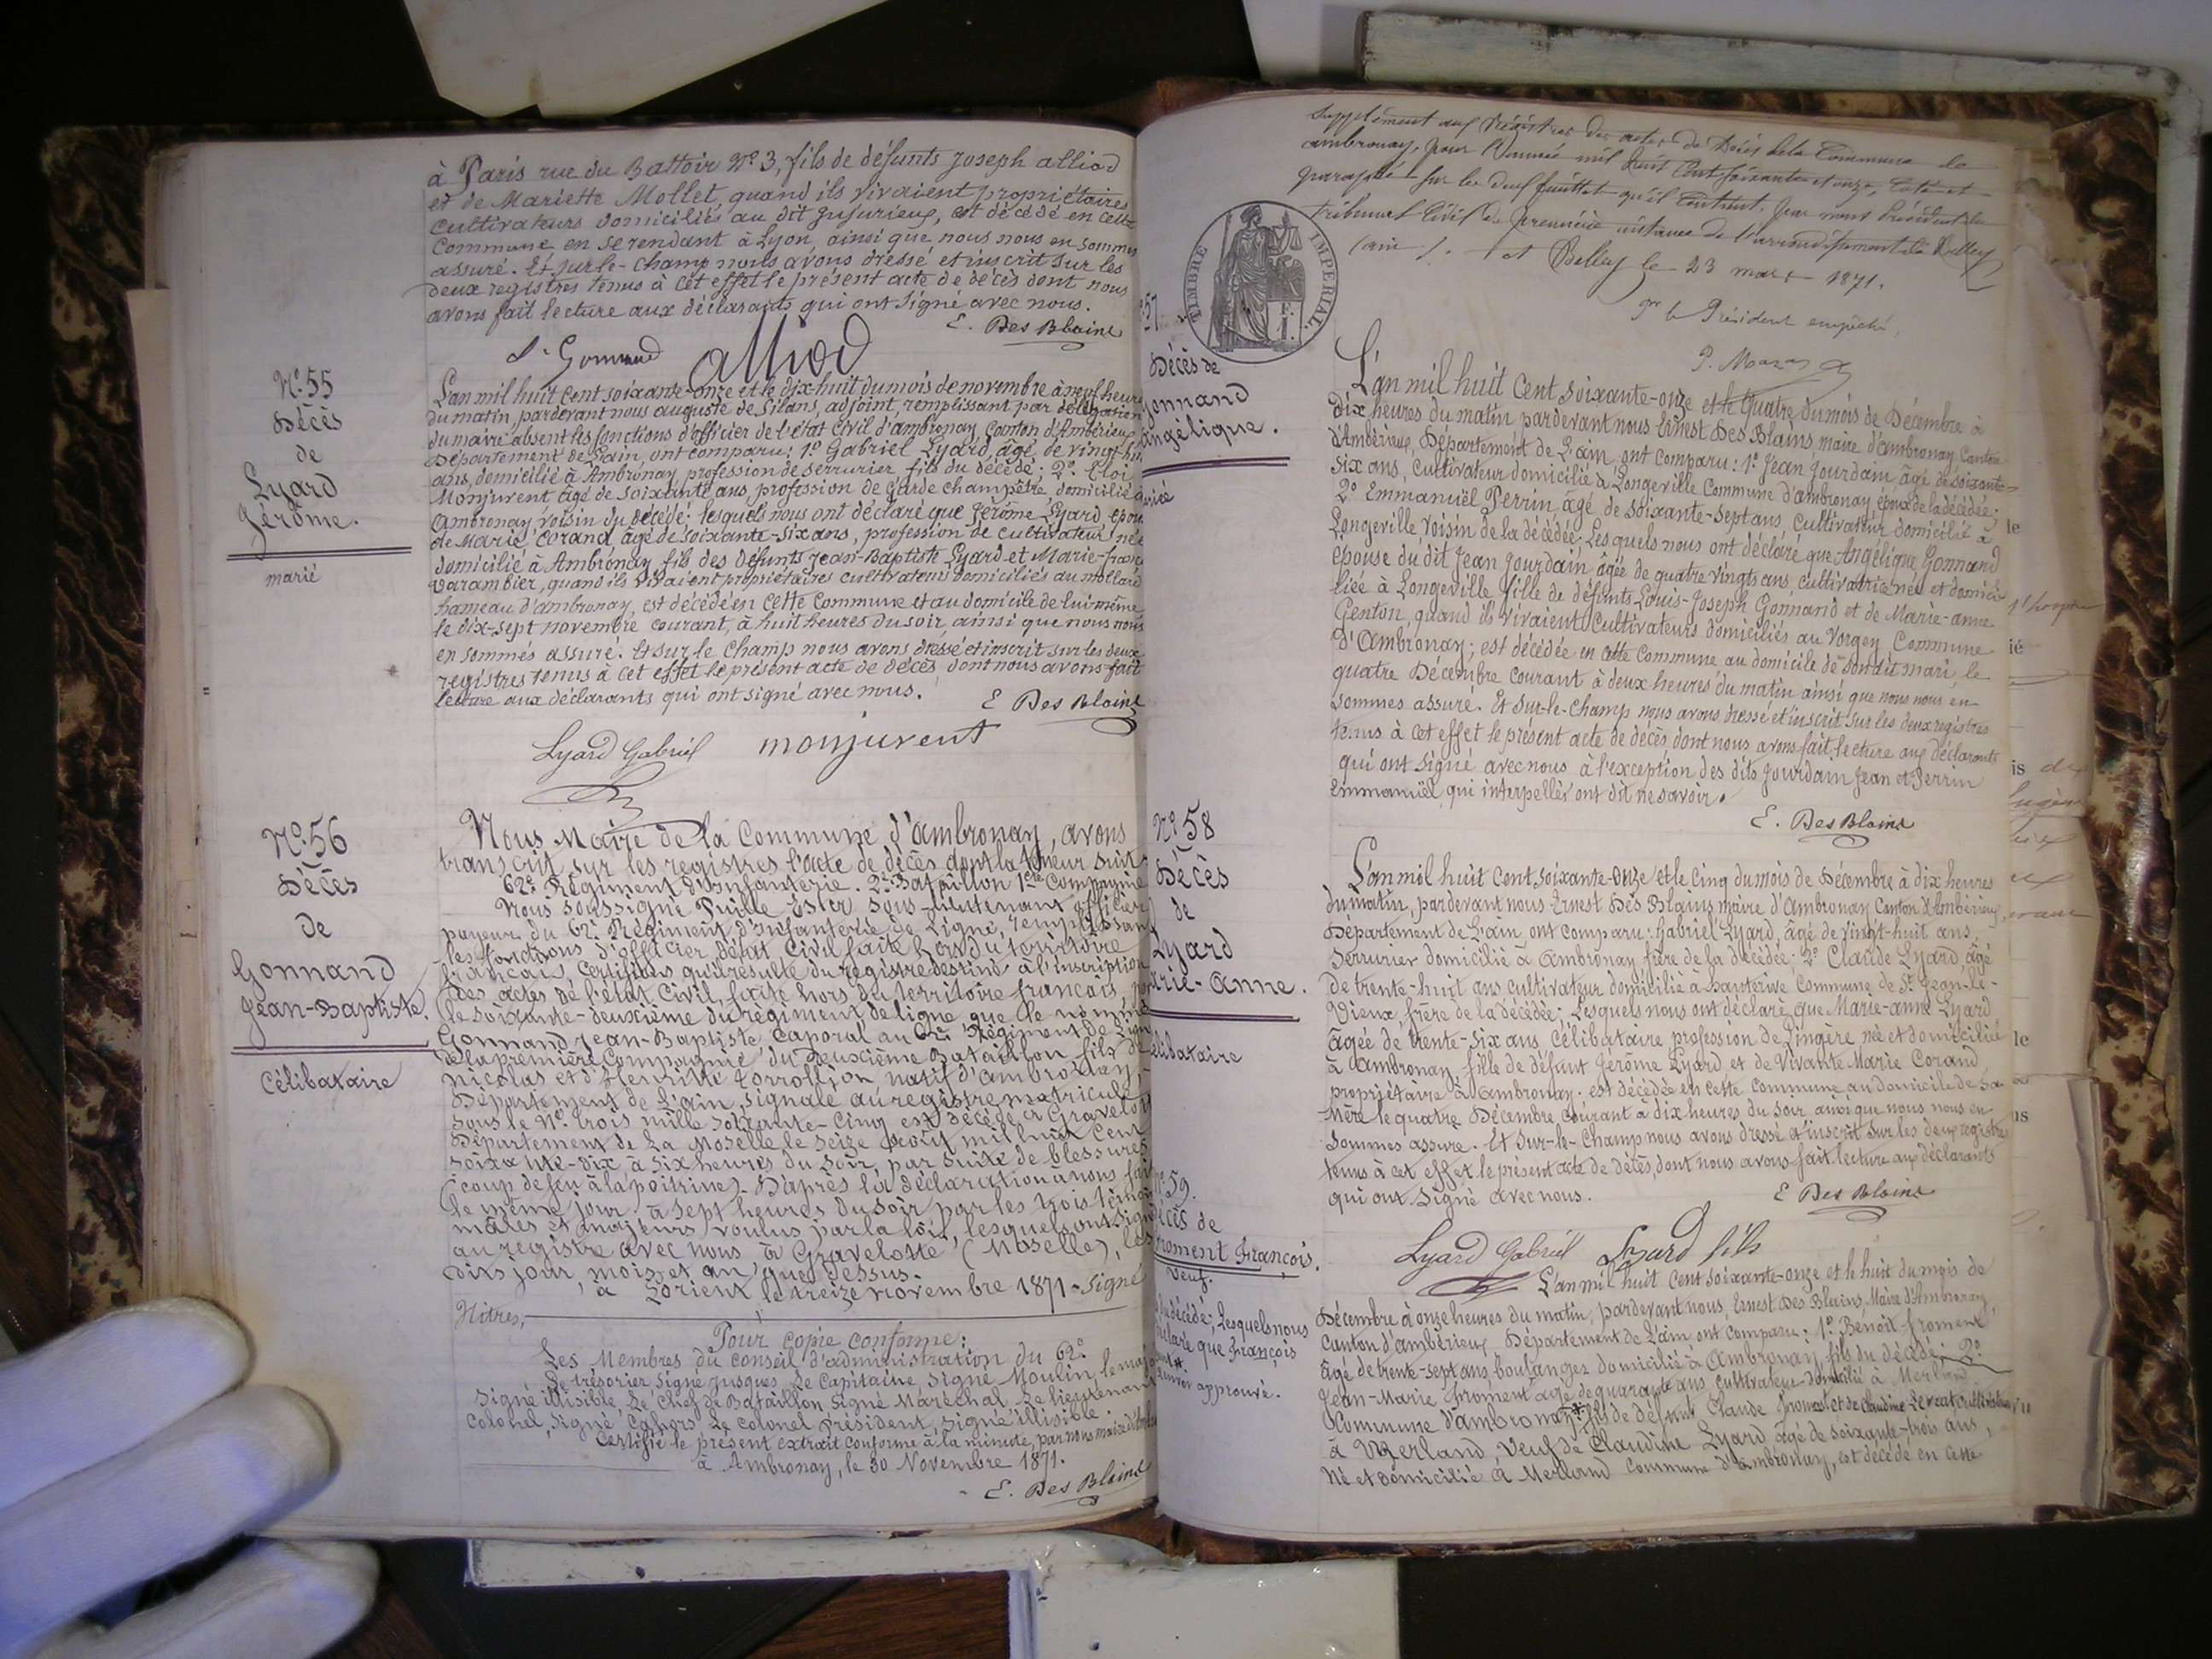 à Paris rue du Battoir N° 3, fils de défunts Joseph alliod
et de Mariette Mollet, quand ils vivaient propriétaires
cultivateurs domiciliés au dit Jujurieux, est décédé en cette
Commune en se rendant à Lyon, ainsi que nous nous en sommes
assuré. Et sur-le-champ nous avons dressé et inscrit sur les
deux registres tenus à cet effet le présent acte de décès dont nous
avons fait lecture aux déclarants qui ont signé avec nous.
E. Des Blains
Gonnand alliod
N° 55
Décès
de
Lyard
Jérôme.
marié
L'an mil huit cent soixante-onze et le dix-huit du mois de novembre à neuf heures
du matin, pardevant nous auguste de Silans, adjoint, remplissant par délégation
du maire absent les fonctions d'officier de l'état civil d'ambronay Canton d'Ambérieux
Département de l'ain, ont comparu: 1° Gabriel Lyard, âgé de vingt-huit
ans, domicilié à Ambronay, profession de serrurier fils du décédé; 2° Eloi
Monjuvent âgé de soixante ans, profession de garde champêtre, domicilié à
Ambronay voisin du décédé; lesquels nous ont déclaré que Jérôme Lyard, époux
de Marie Corand âgé de soixante-six ans, profession de cultivateur né et
domicilié à Ambronay fils des défunts Jean-Baptiste Lyard et Marie-franç
Varambier, quand ils vivaient propriétaires cultivateurs domiciliés au mollard
hameau d'ambronay, est décédé en cette Commune et au domicile de lui-même
le dix-sept novembre courant, à huit heures du soir ainsi que nous nous
en sommes assuré. Et sur le champ nous avons dressé et inscrit sur les deux
registres tenus à cet effet le présent acte de décès dont nous avons fait
lecture aux déclarants qui ont signé avec nous.
E Des Blains
Lyard Gabriel monjuvent
N° 56
Décès
de
Gonnand
Jean-Baptiste.
Célibataire
Nous Maire de la Commune d'ambronay, avons
transcrit sur les registres l'acte de décès dont la teneur suit:
62e Régiment d'Infanterie. 2e Bataillon 1ère Compagnie
Nous soussigné sous-lieutenant officier
payeur du 62e Régiment d'Infanterie de Ligne, remplissant
les fonctions d'officier d'état civil faite hors du territoire
français, Certifions qu'il résulte du registre destiné à l'inscription
des actes de l'état civil, faite hors du territoire français, pour
le soixante-deuxième du régiment de ligne que le nommé
Gonnand Jean-Baptiste Caporal au 62e Régiment de Ligne
de la première Compagnie du deuxième Bataillon fils de
Nicolas et d'Henriette natif d'ambronay,
Département de l'ain, signalé au registre matricule
sous le N° trois mille soixante-cinq est décédé à Gravelotte
Département de la Moselle le seize août mil huit cent
soixante-dix à six heures du soir, par suite de blessures
(coup de feu à la poitrine). D'après la déclaration à nous faite
le même jour à sept heures du soir par les trois témoins
mâles et majeurs voulus par la loi, lesquels ont signé
au registre avec nous à Gravelotte (Moselle), les
dits jour, mois et an que dessus.
à Lorient le treize novembre 1871 - Signé
Nitres,
Pour copie conforme:
Les Membres du conseil d'administration du 62e
Le trésorier signé Jusques, Le Capitaine signé Moulin, le major
Signé illisible, Le Chef de Bataillon, signé Maréchal, Le lieutenant
Colonel, signé Cahors Le colonel Président, signé illisible.
Certifié le présent extrait conforme à la minute, par nous maire
à Ambronay, le 30 Novembre 1871.
E. Des Blains
Supplément aux Registres des actes de Décès de la Commune de
ambronay, pour l'année mil huit cent soixante et onze, Coté et
paraphé sur les deux feuillets qu'il contient. par nous Président du
tribunal Civil de première instance de l'arrondissement de Belley
(ain). à Belley le 23 mars 1871.
Pr le Président empêché,
TIMBRE IMPERIAL.
57
Décès de
Gonnand
Angélique.
L'an mil huit cent soixante-onze et le quatre du mois de Décembre à
dix heures du matin pardevant nous Ernest Des Blains, maire d'ambronay Canton
d'Ambérieux, Département de L'ain, ont comparu: 1° Jean Jourdain, âgé de soixante-
six ans, cultivateur domicilié à Longeville Commune d'ambronay, époux de la décédée;
2° Emmanuël Perrin, âgé de soixante-sept ans, cultivateur domicilié à
Longeville, voisin de la décédée. Lesquels nous ont déclaré que Angélique Gonnand
épouse du dit Jean Jourdain âgée de quatre vingts ans, cultivatrice née et domici-
liée à Longeville fille de défunts Louis-Joseph Gonnand et de Marie-anne
Genton, quand ils vivaient cultivateurs domiciliés au Vorgey Commune
d'Ambronay; est décédée en cette Commune au domicile de son dit mari, le
quatre Décembre courant à deux heures du matin ainsi que nous nous en
sommes assuré. Et sur-le-champ nous avons dressé et inscrit sur les deux registres
tenus à cet effet le présent acte de décès dont nous avons fait lecture aux déclarants
qui ont signé avec nous à l'exception des dits Jourdain Jean et Perrin
Emmanuël, qui interpellés ont dit ne savoir.
E. Des Blains
N° 58
Décès
de
Lyard
Marie-Anne.
célibataire
L'an mil huit cent soixante-onze et le cinq du mois de Décembre à dix heures
du matin, pardevant nous Ernest Des Blains maire d'Ambronay Canton d'Ambérieux,
Département de L'ain, ont comparu: Gabriel Lyard, âgé de vingt-huit ans,
serrurier domicilié à Ambronay frère de la décédée; 2° Claude Lyard, âgé
de trente-huit ans cultivateur domicilié à hauterive Commune de St Jean-le-
Vieux, frère de la décédée; Lesquels nous ont déclaré que Marie-anne Lyard
âgée de trente-six ans célibataire profession de Lingère née et domiciliée
à Ambronay, fille de défunt Jérôme Lyard et de vivante Marie Corand
propriétaire à Ambronay. est décédée en cette Commune au domicile de sa
mère le quatre Décembre courant à dix heures du soir ainsi que nous nous en
sommes assuré. Et sur-le-champ nous avons dressé et inscrit sur les deux registres
tenus à cet effet le présent acte de décès, dont nous avons fait lecture aux déclarants
qui ont signé avec nous.
E Des Blains
Lyard Gabriel Lyard fils
N° 59.
Décès de
froment François.
Veuf.
L'an mil huit cent soixante-onze et le huit du mois de
Décembre à onze heures du matin, pardevant nous, Ernest Des Blains, Maire d'Ambronay,
Canton d'ambérieux, Département de L'ain ont comparu: 1° Benoit froment
âgé de trente-sept ans boulanger domicilié à Ambronay, fils du décédé; 2°
Jean-Marie froment âgé de quarante ans cultivateur domicilié à Merland
Commune d'ambronay* fils de défunt Claude froment et de Claudine Levrat cultivateurs
à Merland, veuf de Claudine Lyard âgé de soixante-trois ans,
né et domicilié à Merland Commune d'ambronay, est décédé en cette
du décédé; Lesquels nous
déclaré que François
approuvé.